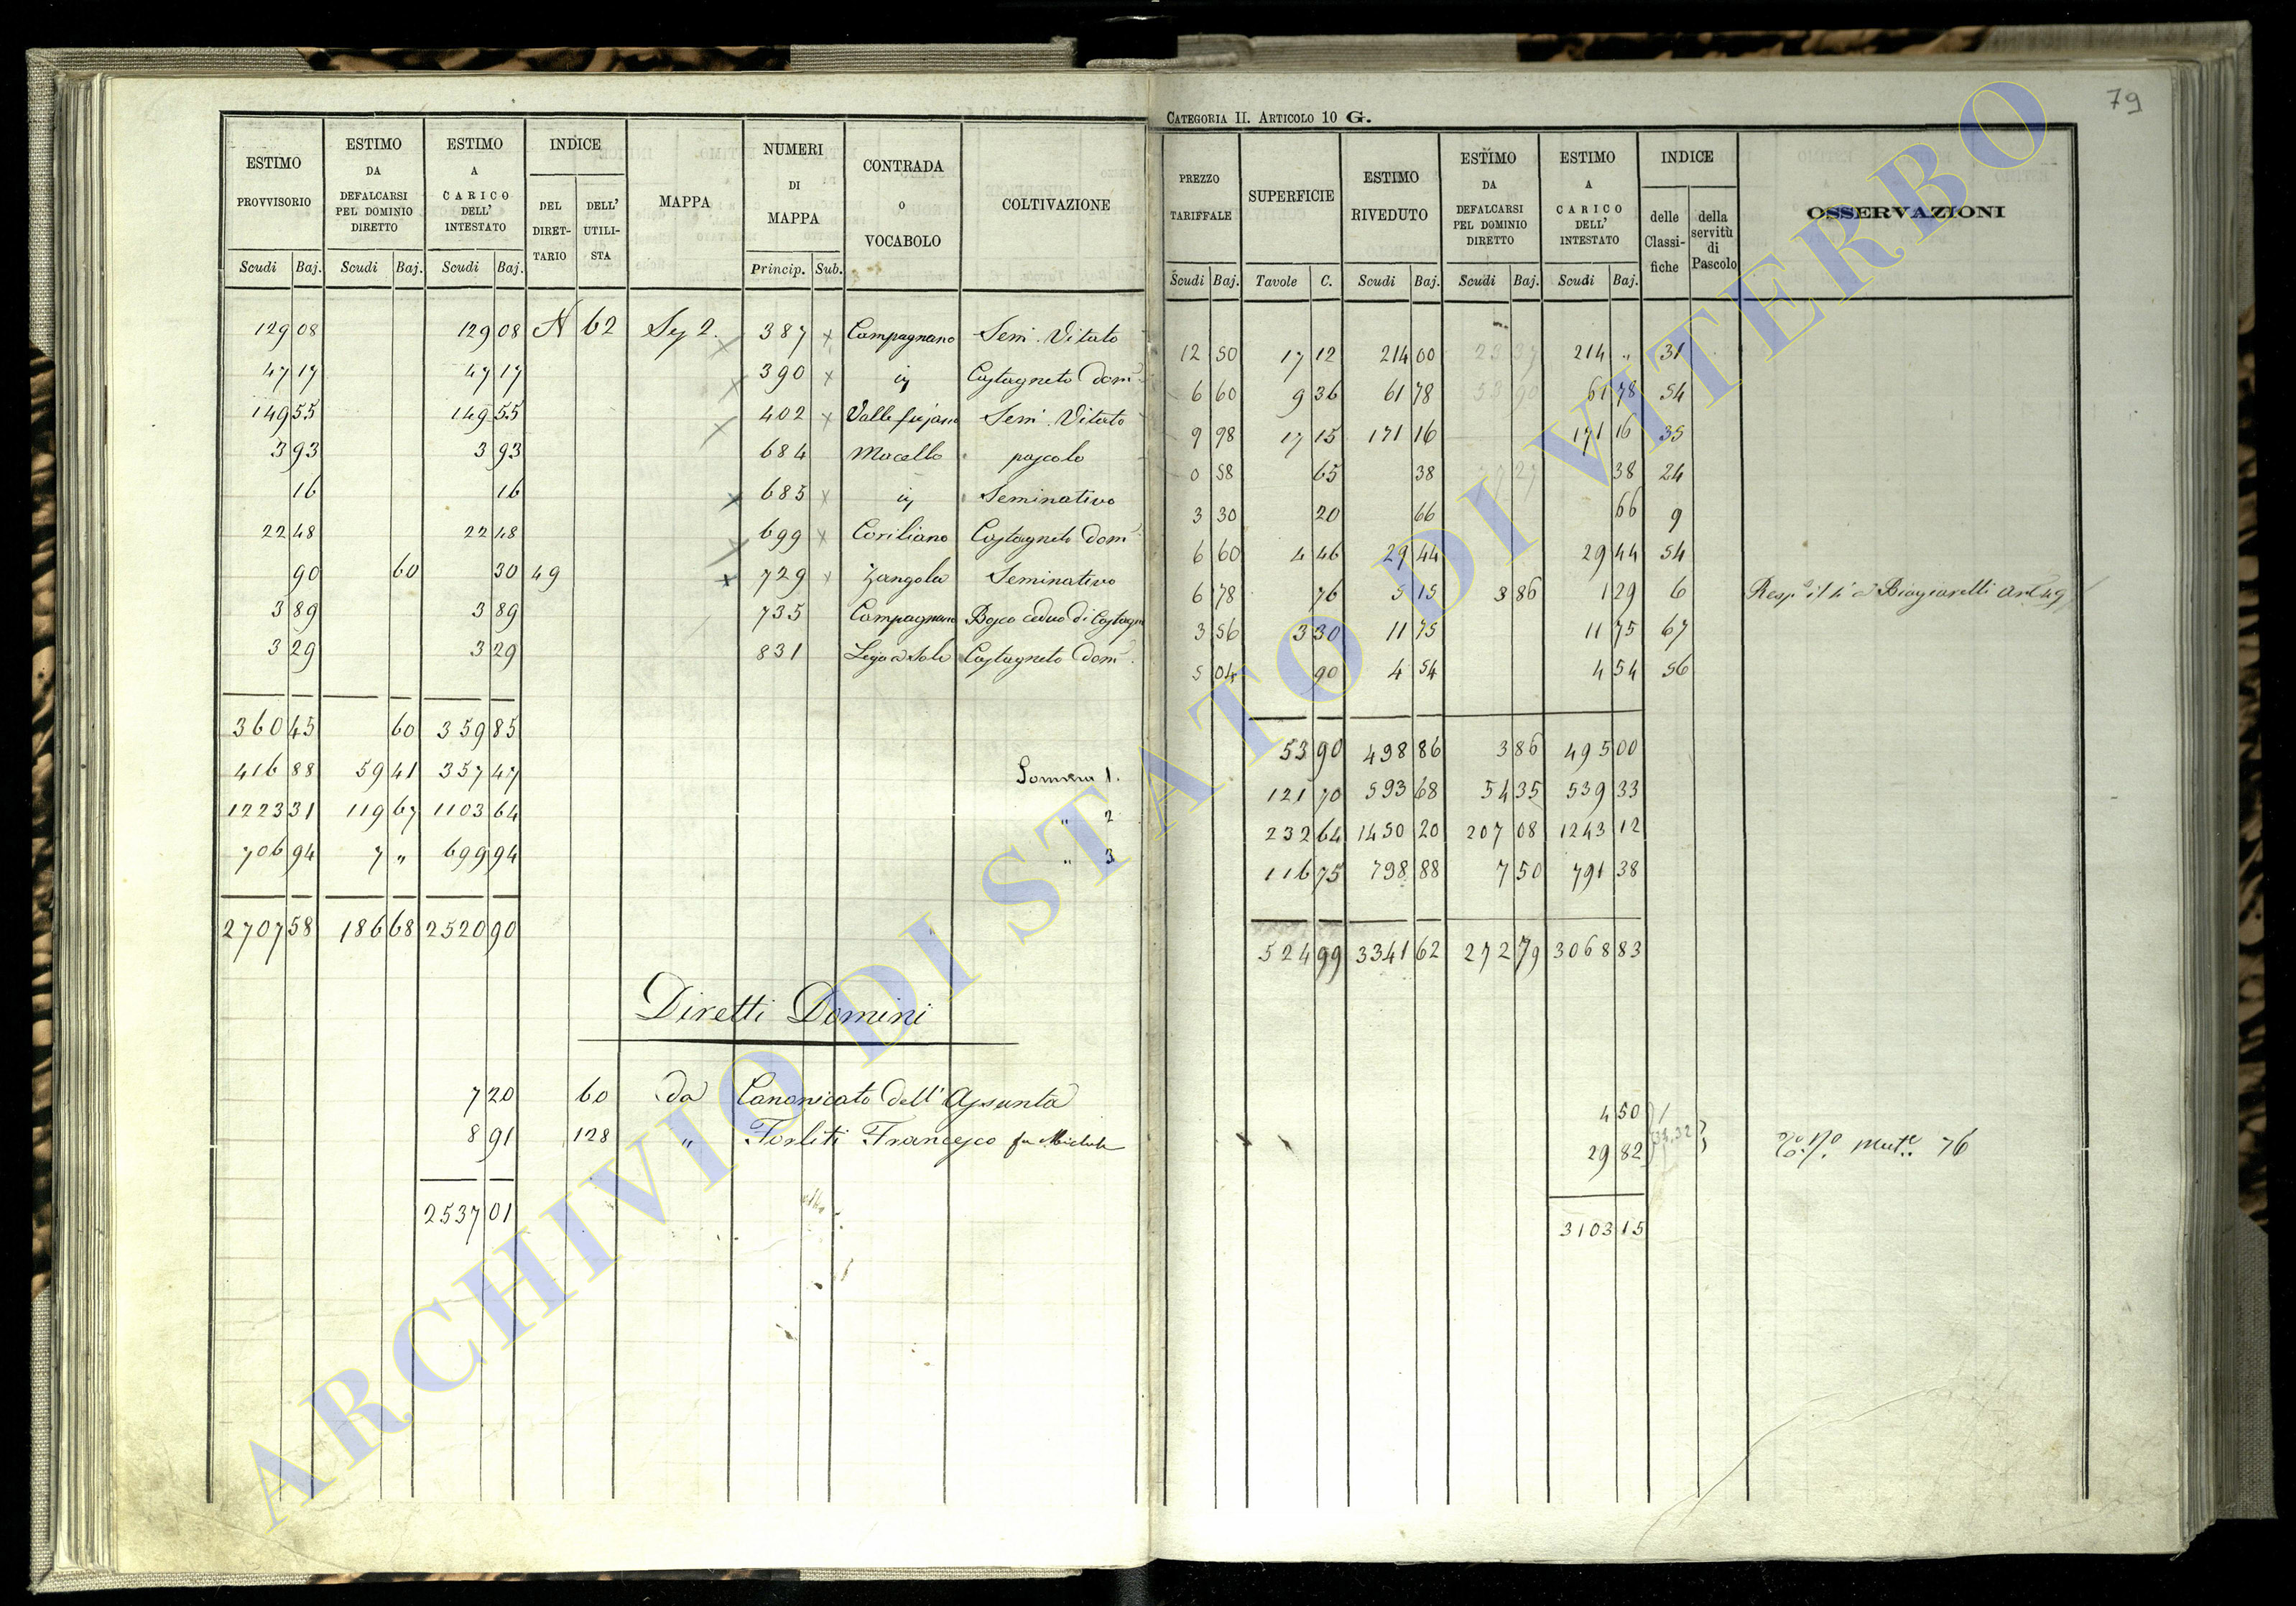 79
CATEGORIA II. ARTICOLO 10 G.
ESTIMO PROVVISORIO Scudi Baj. ESTIMO DA DEFALCARSI PEL DOMINIO DIRETTO Scudi Baj. ESTIMO A CARICO DELL' INTESTATO Scudi Baj. INDICE DEL DIRETTARIO DELL' UTILISTA MAPPA NUMERI DI MAPPA Princip. Sub. CONTRADA O VOCABOLO COLTIVAZIONE
129 08 129 08 N 62 Sez 2. 387 x Campagnano Semi. Vitato
47 17 47 17 390 x Castagneto Dom
149 55 149 55 402 x Semi. Vitato
3 93 3 93 684 Macello pascolo
16 16 685 x Seminativo
22 48 22 48 699 x Coriliano Castagneto Dom
90 60 30 49 x 729 x Zangola Seminativo
3 89 3 89 735 Campagnano Bosco ceduo di Castagn
3 29 3 29 831 Castagneto Dom
360 45 60 359 85
416 88 59 41 357 47 Somma 1.
1223 31 119 67 1103 64 " 2
706 94 7 " 699 94 " 3
2707 58 186 68 2520 90
Diretti Domini
7 20 60 da Canonicato dell'Assunta
8 91 128 " Forliti Francesco fu Michele
2537 01
PREZZO TARIFFALE Scudi Baj. SUPERFICIE Tavole C. ESTIMO RIVEDUTO Scudi Baj. ESTIMO DA DEFALCARSI PEL DOMINIO DIRETTO Scudi Baj. ESTIMO A CARICO DELL' INTESTATO Scudi Baj. INDICE delle Classifiche della servitù di Pascolo OSSERVAZIONI
12 50 17 12 214 00 214 " 31
6 60 9 36 61 78 61 78 54
9 98 17 15 171 16 171 16 35
0 58 65 38 38 24
3 30 20 66 66 9
6 60 4 46 29 44 29 44 54
6 78 76 5 15 3 86 1 29 6 Biagiarelli Art 49
3 56 3 30 11 75 11 75 67
5 04 90 4 54 4 54 56
53 90 498 86 3 86 495 00
121 70 593 68 54 35 539 33
232 64 1450 20 207 08 1243 12
116 75 798 88 7 50 791 38
524 99 3341 62 272 79 3068 83
4 50
29 82 34.32 76
3103 15
ARCHIVIO DI STATO DI VITERBO